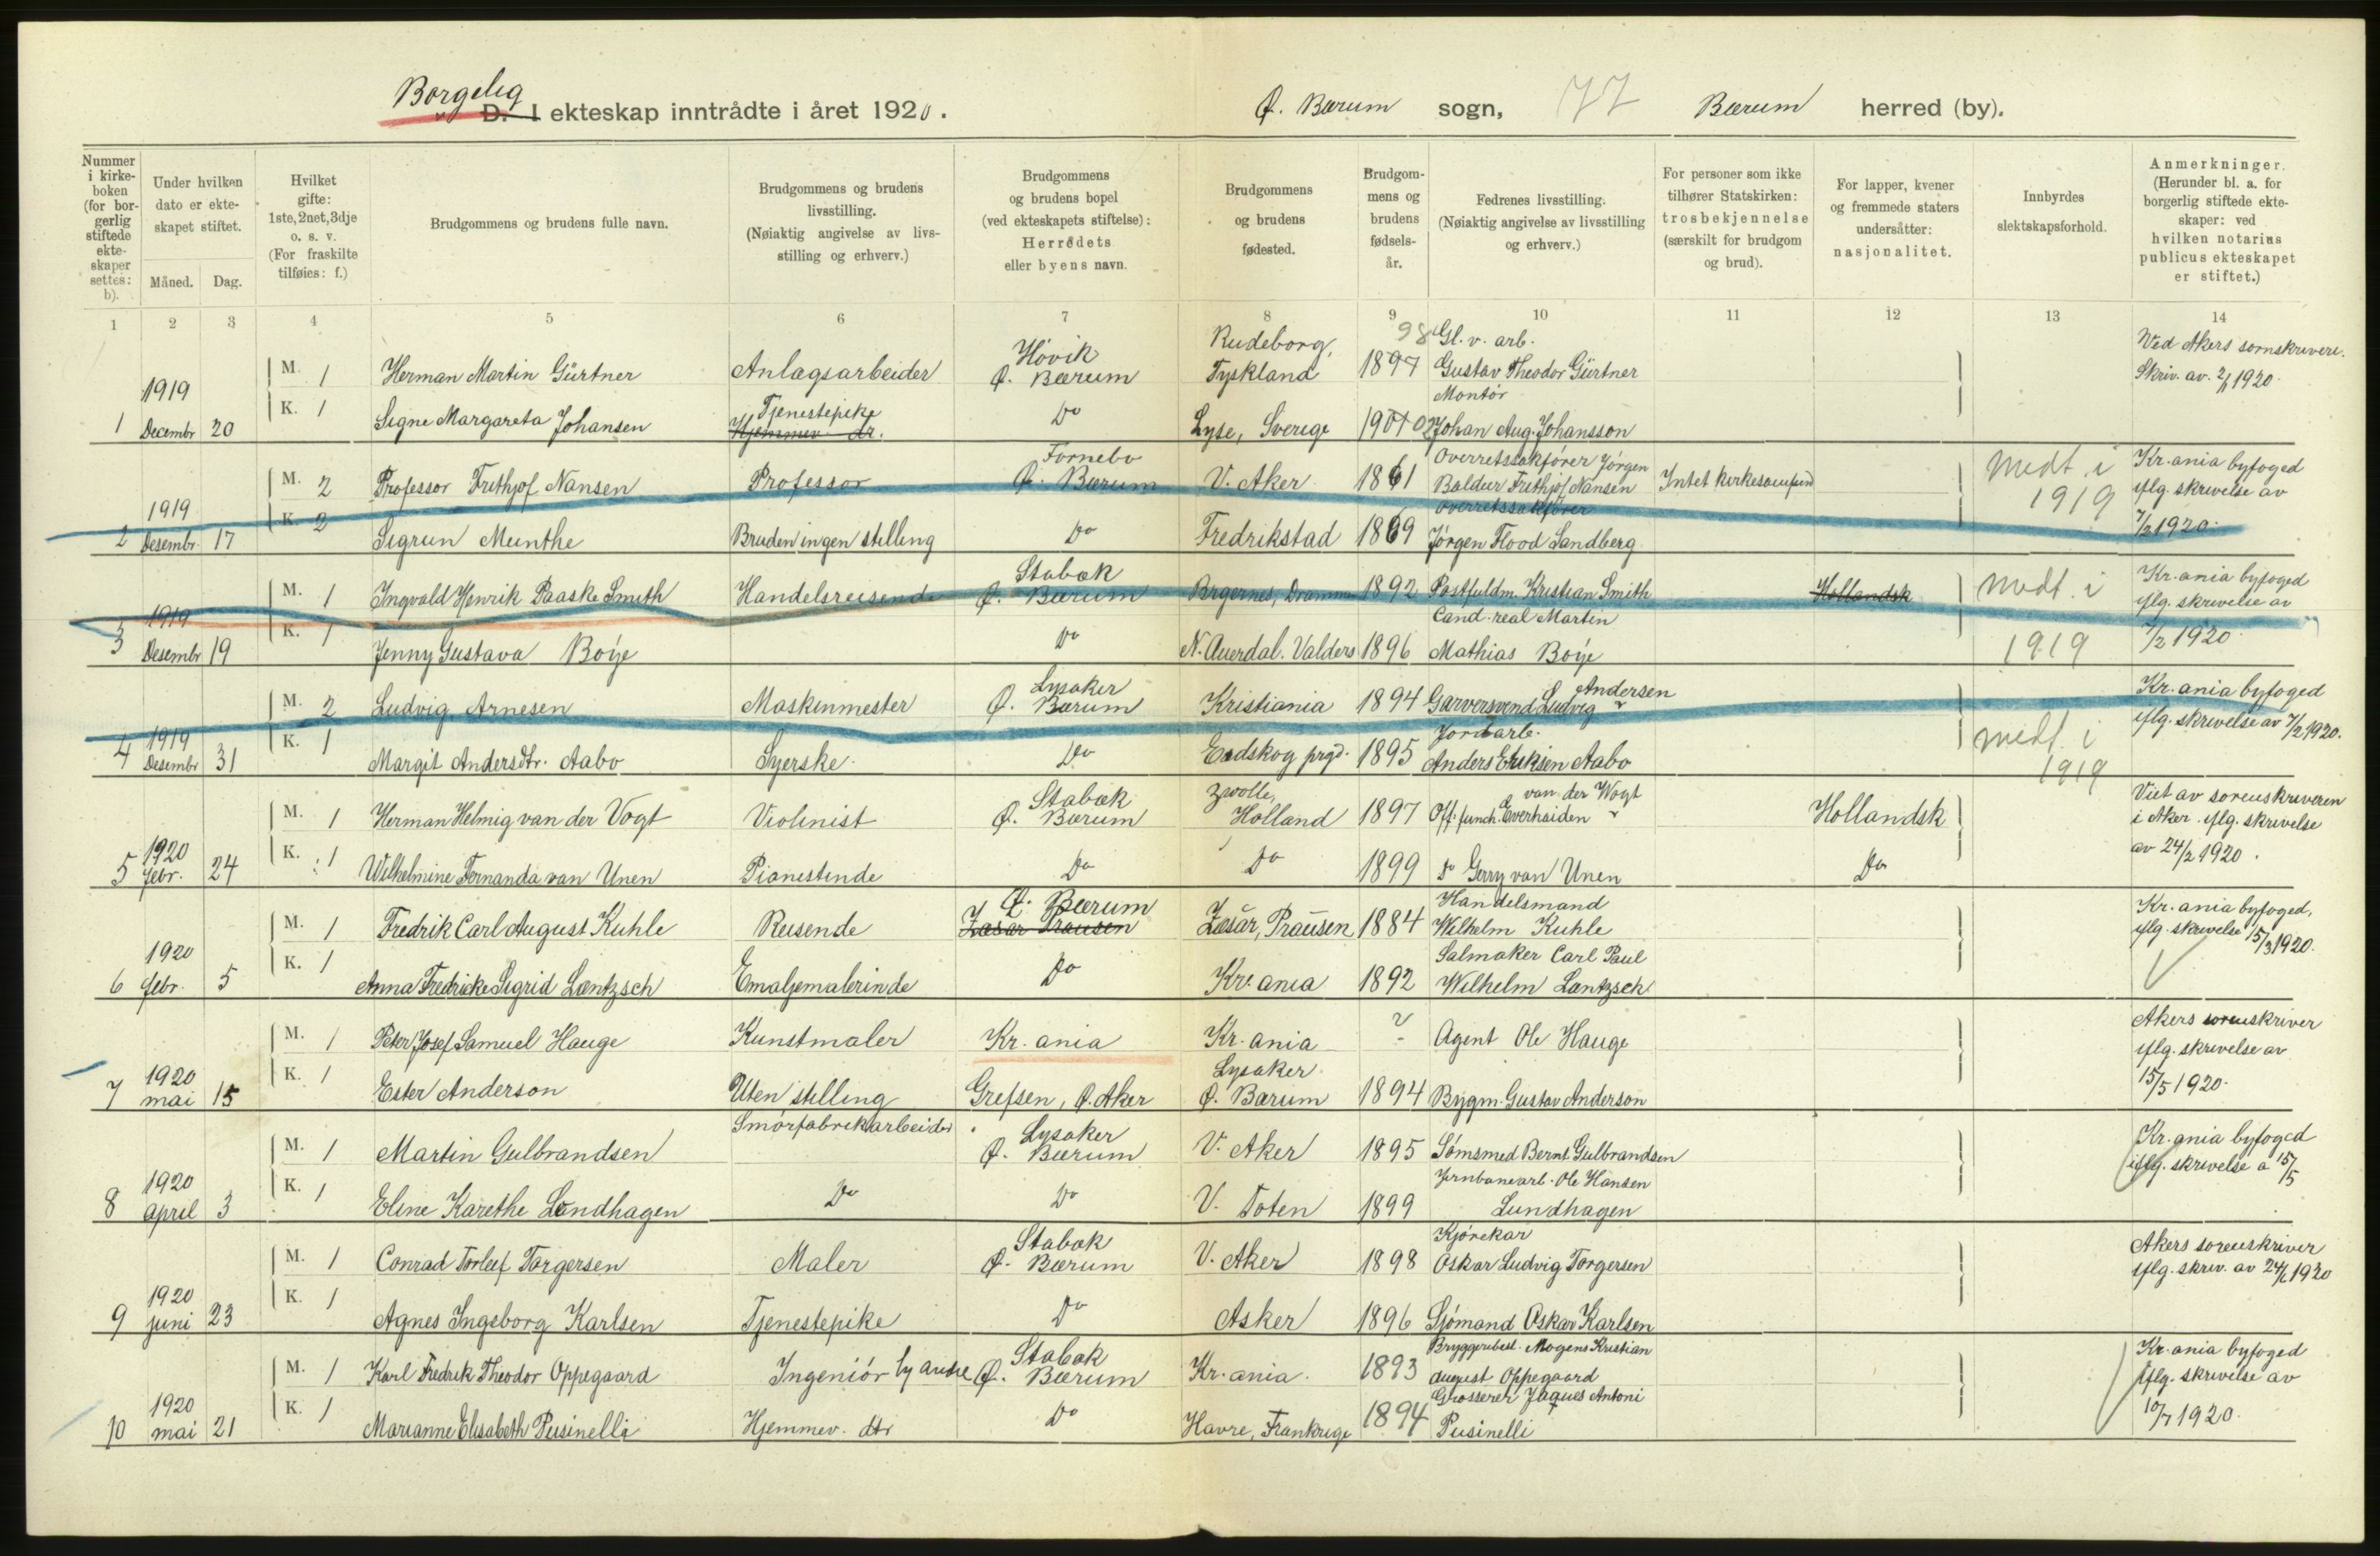 Borgelig
D. I ekteskap inntrådte i året 1920.
Ø. Bærum sogn, 77 Bærum herred (by).
Nummer i kirkeboken (for borgerlig stiftede ekteskaper settes: b).
Under hvilken dato er ekteskapet stiftet.
Måned. Dag.
Hvilket gifte: 1ste, 2net, 3dje o. s. v. (For fraskilte tilføies: f.)
Brudgommens og brudens fulle navn.
Brudgommens og brudens livsstilling. (Nøiaktig angivelse av livsstilling og erhverv.)
Brudgommens og brudens bopel (ved ekteskapets stiftelse): Herredets eller byens navn.
Brudgommens og brudens fødested.
Brudgommens og brudens fødselsår.
Fedrenes livsstilling. (Nøiaktig angivelse av livsstilling og erhverv.)
For personer som ikke tilhører Statskirken: trosbekjennelse (særskilt for brudgom og brud).
For lapper, kvener og fremmede staters undersåtter: nasjonalitet.
Innbyrdes slektskapsforhold.
Anmerkninger. (Herunder bl. a. for borgerlig stiftede ekteskaper: ved hvilken notarius publicus ekteskapet er stiftet.)
1 2 3 4 5 6 7 8 9 10 11 12 13 14
M. 1 Herman Martin Gürtner Anlægsarbeider Høvik Ø. Bærum Rudeborg, Tyskland 1897 98 Gl. v. arb. Gustav Theodor Gürtner Ved Akers sornskriveri. Skriv. av. 2/1 1920.
1 1919 Decembr 20 K. 1 Signe Margareta Johansen Tjenestepike Hjemmev. dtr. Do Lyse, Sverige 1901 02 Montør Johan Aug. Johansson
M. 2 Professor Frithjof Nansen Professor Fornebo Ø. Bærum V. Aker 1861 Overretssakfører Jørgen Baldur Frithjof Nansen Intet kirkesamfund medt. i 1919 Kr.ania byfoged iflg. skrivelse av 7/2 1920.
2 1919 Desembr. 17 K. 2 Sigrun Munthe Bruden ingen stilling Do Fredrikstad 1869 Overretssakfører Jørgen Flood Sandberg
M. 1 Ingvald Henrik Paaske Smith Handelsreisende Stabæk Ø. Bærum Bragernes, Drammen 1892 Postfuldm. Kristian Smith Hollandsk medt. i 1919 Kr.ania byfoged iflg. skrivelse av 7/2 1920.
3 1919 Desembr 19 K. 1 Jenny Gustava Boije Do N. Auerdal. Valders 1896 Cand. real Martin Mathias Boije
M. 2 Ludvig Arnesen Maskinmester Lysaker Ø. Bærum Kristiania 1894 Garversvend Ludvig Andersen medt. i 1919 Kr.ania byfoged iflg. skrivelse av 7/2 1920.
4 1919 Desembr 31 K. 1 Margit Andersdtr. Aabo Syerske. Do Eidskog prgd. 1895 Jordarb. Anders Eriksen Aabo
M. 1 Herman Helmig van der Vogt Violinist Stabæk Ø. Bærum Zwolle, Holland 1897 Off. funch. Everhaiden van der Wogt Hollandsk Viet av sorenskriveren i Aker. iflg. skrivelse av 24/2 1920.
5 1920 febr. 24 K. 1 Wilhelmine Fernanda van Unen Pianistinde Do Do 1899 Do Gerry van Unen Do
M. 1 Fredrik Carl August Kuhle Reisende Ø. Bærum Zasar Prausen Zasar, Prausen 1884 Handelsmand Wilhelm Kuhle Kr.ania byfoged, iflg. skrivelse 15/3 1920.
6 1920 febr. 5 K. 1 Anna Fredricke Sigrid Læntzsch Emaljemalerinde Do Kr.ania 1892 Salmaker Carl Paul Wilhelm Læntzsch
M. 1 Peter Josef Samuel Hauge Kunstmaler Kr.ania Kr.ania ? Agent Ole Hauge Akers sorenskriver iflg. skrivelse av 15/5 1920.
7 1920 mai 15 K. 1 Ester Anderson Uten stilling Grefsen, Ø. Aker Lysaker Ø. Bærum 1894 Bygm. Gustav Anderson
M. 1 Martin Gulbrandsen Smørfabrikarbeider Lysaker Ø. Bærum V. Aker 1895 Sømsmed Bernt Gulbrandsen Kr.ania byfoged iflg. skrivelse a 15/5
8 1920 april 3 K. 1 Eline Karethe Lundhagen Do Do V. Toten 1899 Jernbanearb. Ole Hansen Lundhagen
M. 1 Conrad Torleif Torgersen Maler Stabæk Ø. Bærum V. Aker 1898 Kjørekar Oskar Ludvig Torgersen Akers sorenskriver iflg. skriv. av 24/6 1920
9 1920 juni 23 K. 1 Agnes Ingeborg Karlsen Tjenestepike Do Asker 1896 Sjømand Oskar Karlsen
M. 1 Karl Fredrik Theodor Oppegaard Ingeniør Stabæk Ø. Bærum Kr.ania. 1893 Bryggeribest. Mogens Kristian August Oppegaard Kr.ania byfoged iflg. skrivelse av 10/7 1920.
10 1920 mai 21 K. 1 Marianne Elisabeth Pusinelli Hjemmev. dtr Do Havre, Frankrige 1894 Grosserer Jaques Antoni Pusinelli